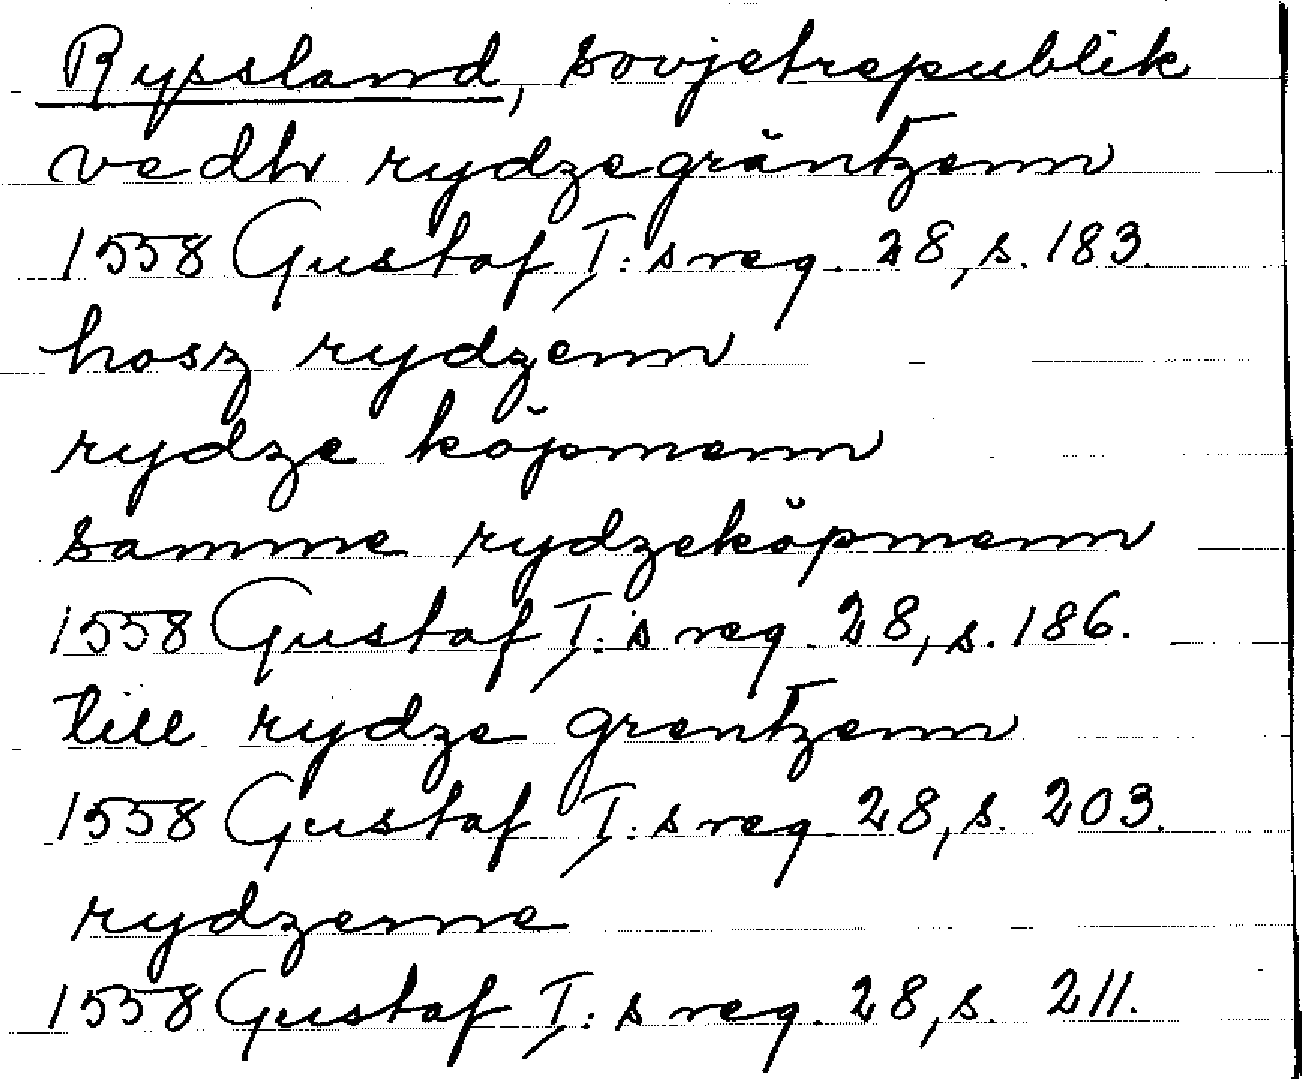 Ryssland, sovjetrepublik
vedh rydzegräntzenn
1558 Gustaf I:s reg. 28, s. 183.
hosz rydzenn
rydze köpmenn
samme rydzeköpmenn
1558 Gustaf I:s reg. 28, s. 186.
till rydze grentzenn
1558 Gustaf I:s reg. 28, s. 203.
rydzerne
1558 Gustaf I:s reg. 28, s. 211.